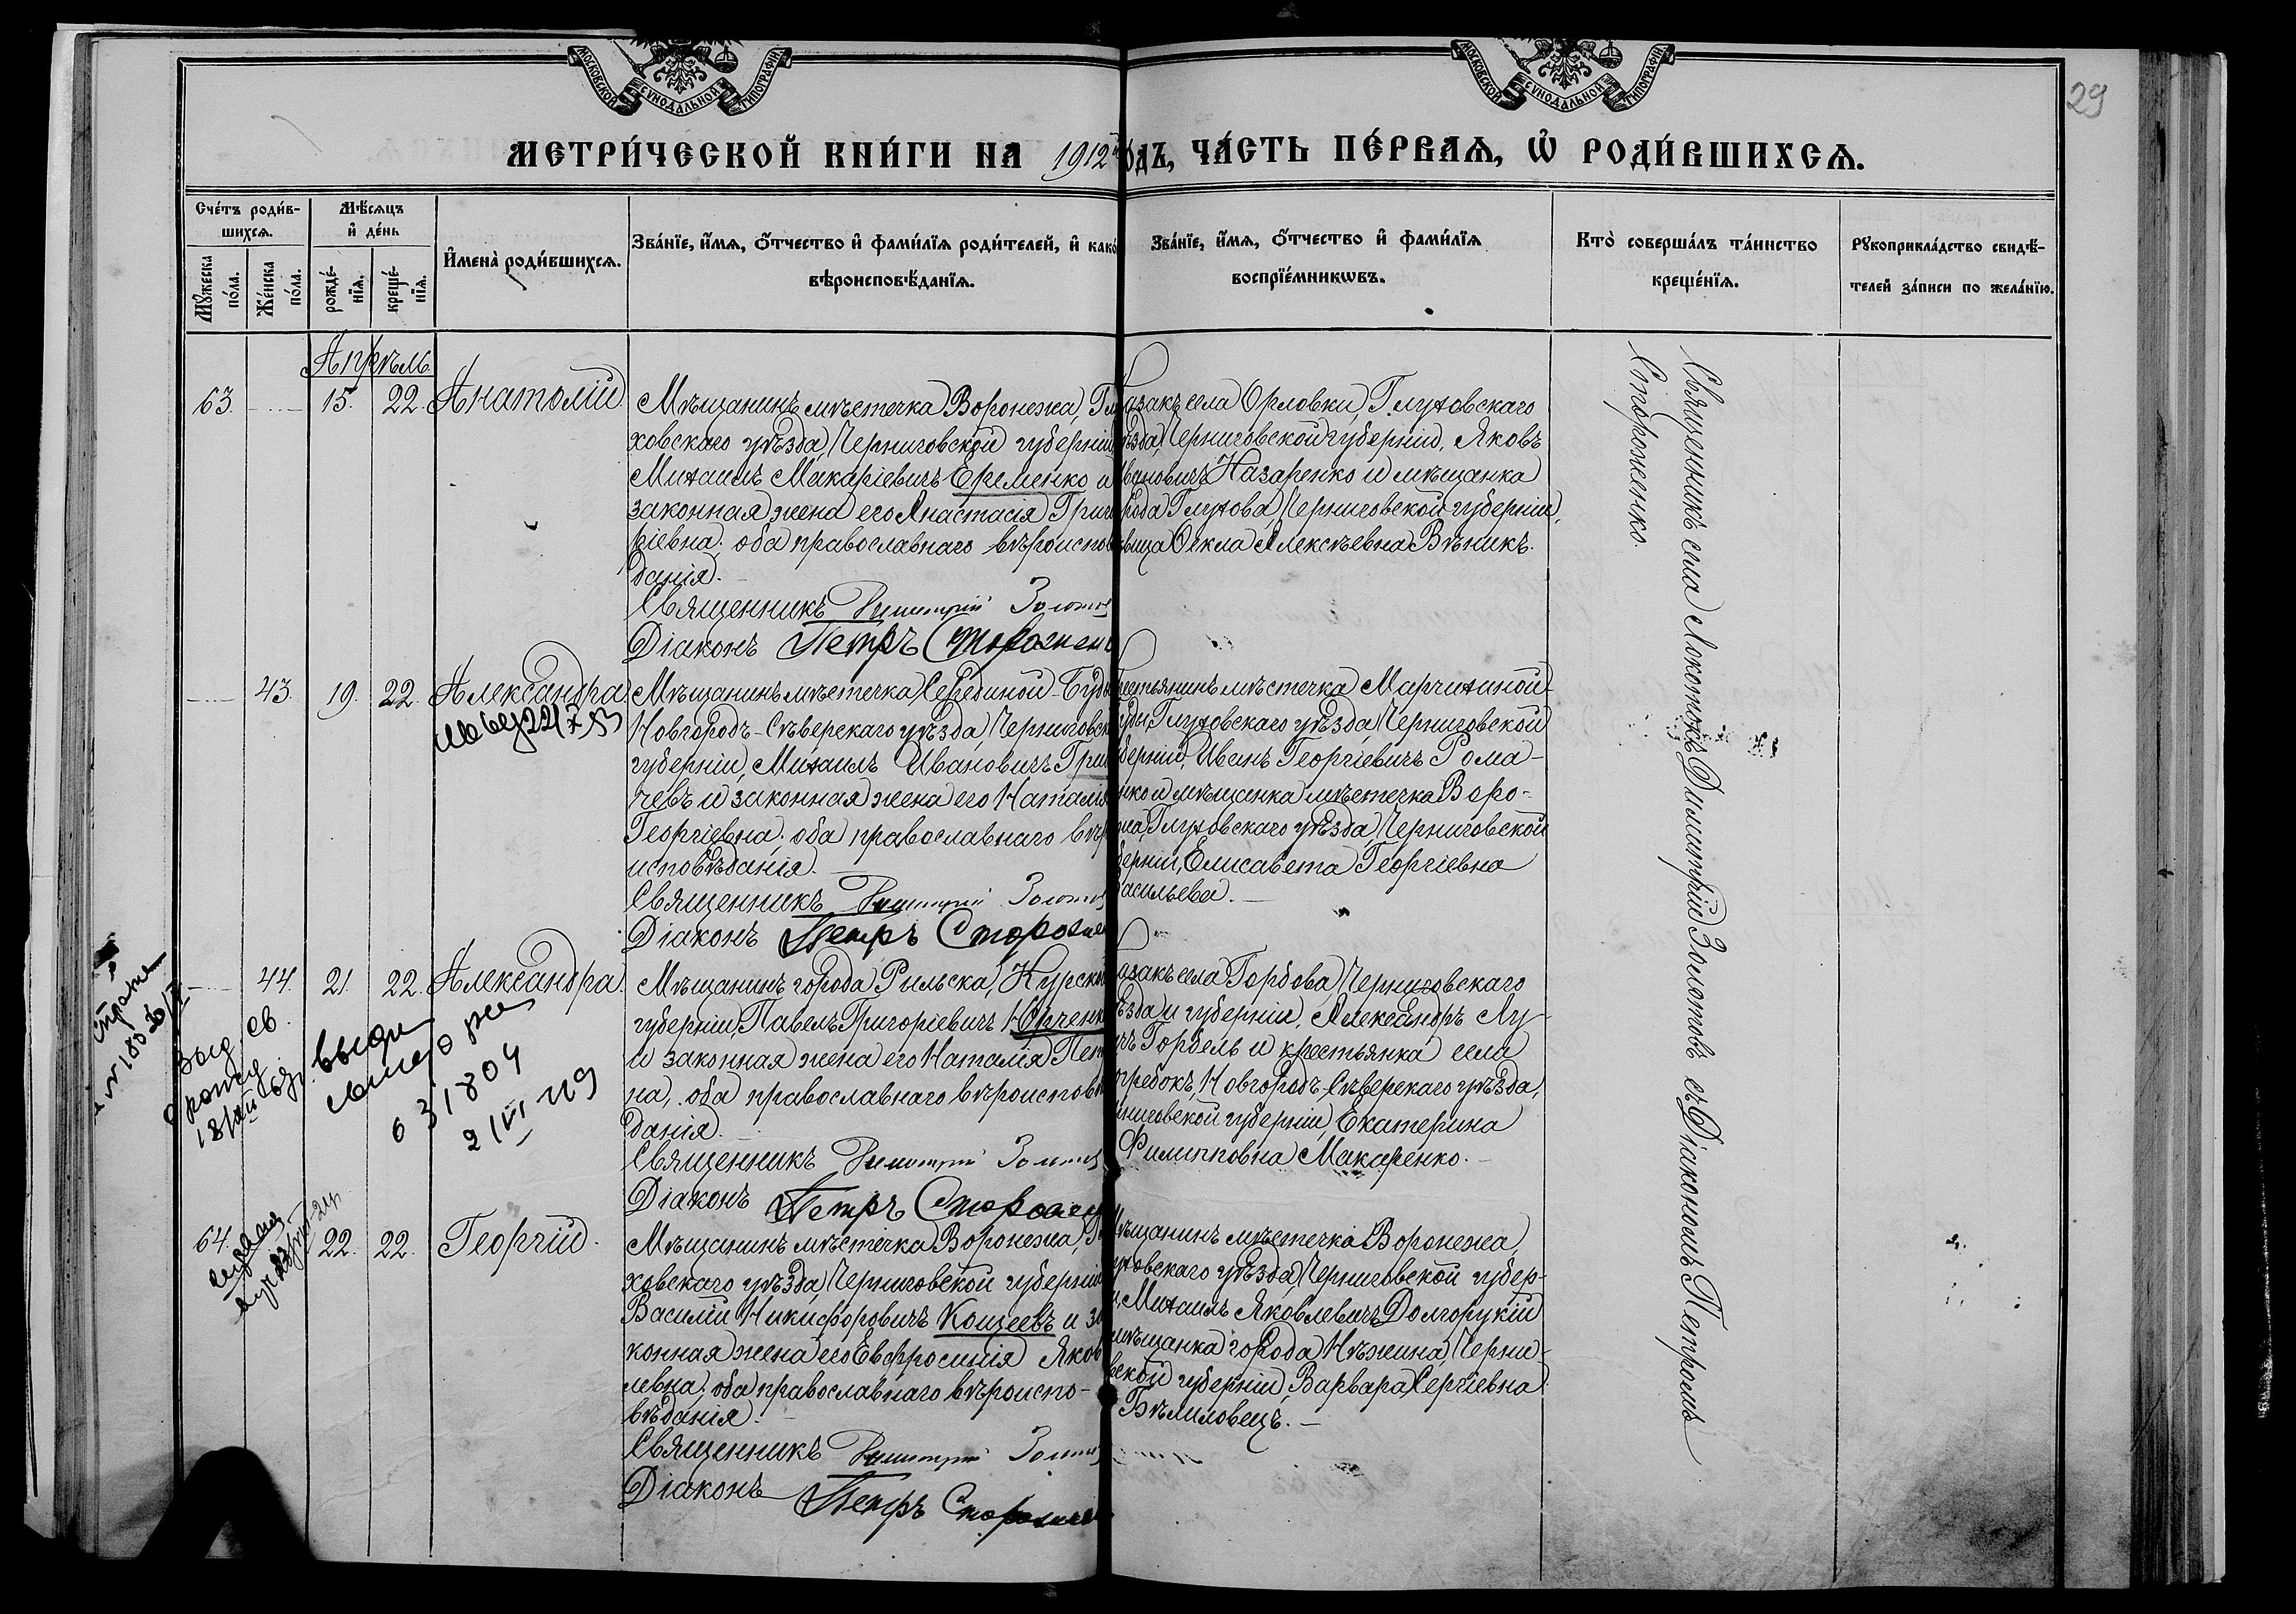 МОСКОВСКОЙ СѴНОДАЛЬНОЙ ТИПОГРАФІИ
МОСКОВСКОЙ СѴНОДАЛЬНОЙ ТИПОГРАФІИ
29
МЕТРИ́ЧЕСКОЙ КНИ́ГИ НА 1912
ОДЪ, ЧА́СТЬ ПЕ́РВАѦ, Ѡ РОДИ́ВШИХСѦ.
Сче́тъ роди́в-
шихсѧ.
Мѣ́сѧцъ
и҆ де́нь
Мꙋ́жеска
по́ла.
Же́нска
по́ла.
рожде́-
нїѧ.
креще́-
нїѧ.
И҆мена̀ роди́вшихсѧ.
Зва́нїе, и҆́мѧ, ѻ҆́тчество и҆ фами́лїѧ роди́телей, и҆ како
вѣроисповѣ́данїѧ.
Зва́нїе, и҆́мѧ, ѻ҆́тчество и҆ фами́лїѧ
воспрїе́мникѡвъ.
Кто̀ соверша́лъ та́инство
креще́нїѧ.
Рꙋкоприкла́дство свидѣ́-
телей за́писи по жела́нїю.
Апрѣль.
63. 15. 22. Анатолій
Мѣщанинъ мѣстечка Воронежа, Глу
ховскаго уѣзда, Черниговской губерніи,
Михаилъ Макаріевичъ Еременко и
законная жена его Анастасія Григо
ріевна; оба православнаго вѣроиспов
данія.
Священникъ Димитрій Золотов
Діаконъ Петръ Стороженк
азакъ села Орловки, Глуховскаго
ѣзда, Черниговской губерніи, Яковъ
вановичъ Назаренко и мѣщанка
рода Глухова, Черниговской губерніи,
вица Ѳекла Алексѣевна Вѣникъ.
43. 19. 22. Александра.
Мѣщанинъ мѣстечка Середіной-Буды
Новгородъ-Сѣверскаго уѣзда, Черниговск
губерніи, Михаилъ Ивановичъ Гри
чевъ и законная жена его Наталія
Георгіевна; оба православнаго вѣр
исповѣданія.
Священникъ Димитрій Золотов
Діаконъ Петръ Сторожен
рестьянинъ мѣстечка Марчихиной-
уды, Глуховскаго уѣзда, Черниговской
берніи, Иванъ Георгіевичъ Рома-
нко и мѣщанка мѣстечка Воро-
жа, Глуховскаго уѣзда, Черниговской
берніи, Елисавета Георгіевна
асильева.
44. 21. 22. Александра.
Мѣщанинъ города Рильска, Курской
губерніи, Павелъ Григоріевичъ Юрченк
и законная жена его Наталія Пет
на, оба православнаго вѣроисповѣ
данія.
Священникъ Димитрій Золотов
Діаконъ Петръ Сторожен
азакъ села Горбова, Черниговскаго
ѣзда и губерніи, Александръ Лу-
ичъ Горбель и крестьянка села
огребокъ, Новгородъ-Сѣверскаго уѣзда,
рниговской губерніи, Екатерина
Филипповна Макаренко.
631804
64. 22. 22. Георгій.
Мѣщанинъ мѣстечка Воронежа, Гл
ховскаго уѣзда, Черниговской губерніи
Василій Никифоровичъ Кощеевъ и за
конная жена его Евфросинія Яков
левна; оба православнаго вѣроиспо-
вѣданія.
Священникъ Димитрій Золотов
Діаконъ Петръ Сторожен
ѣщанинъ мѣстечка Воронежа,
уховскаго уѣзда, Черниговской губер-
и, Михаилъ Яковлевичъ Долгорукій
мѣщанка города Нѣжина, Черни-
вской губерніи, Варвара Сергіевна
Бѣлиловецъ.
Священникъ села Локотокъ Димитрій Золотовъ съ Діакономъ Петромъ
Стороженко.